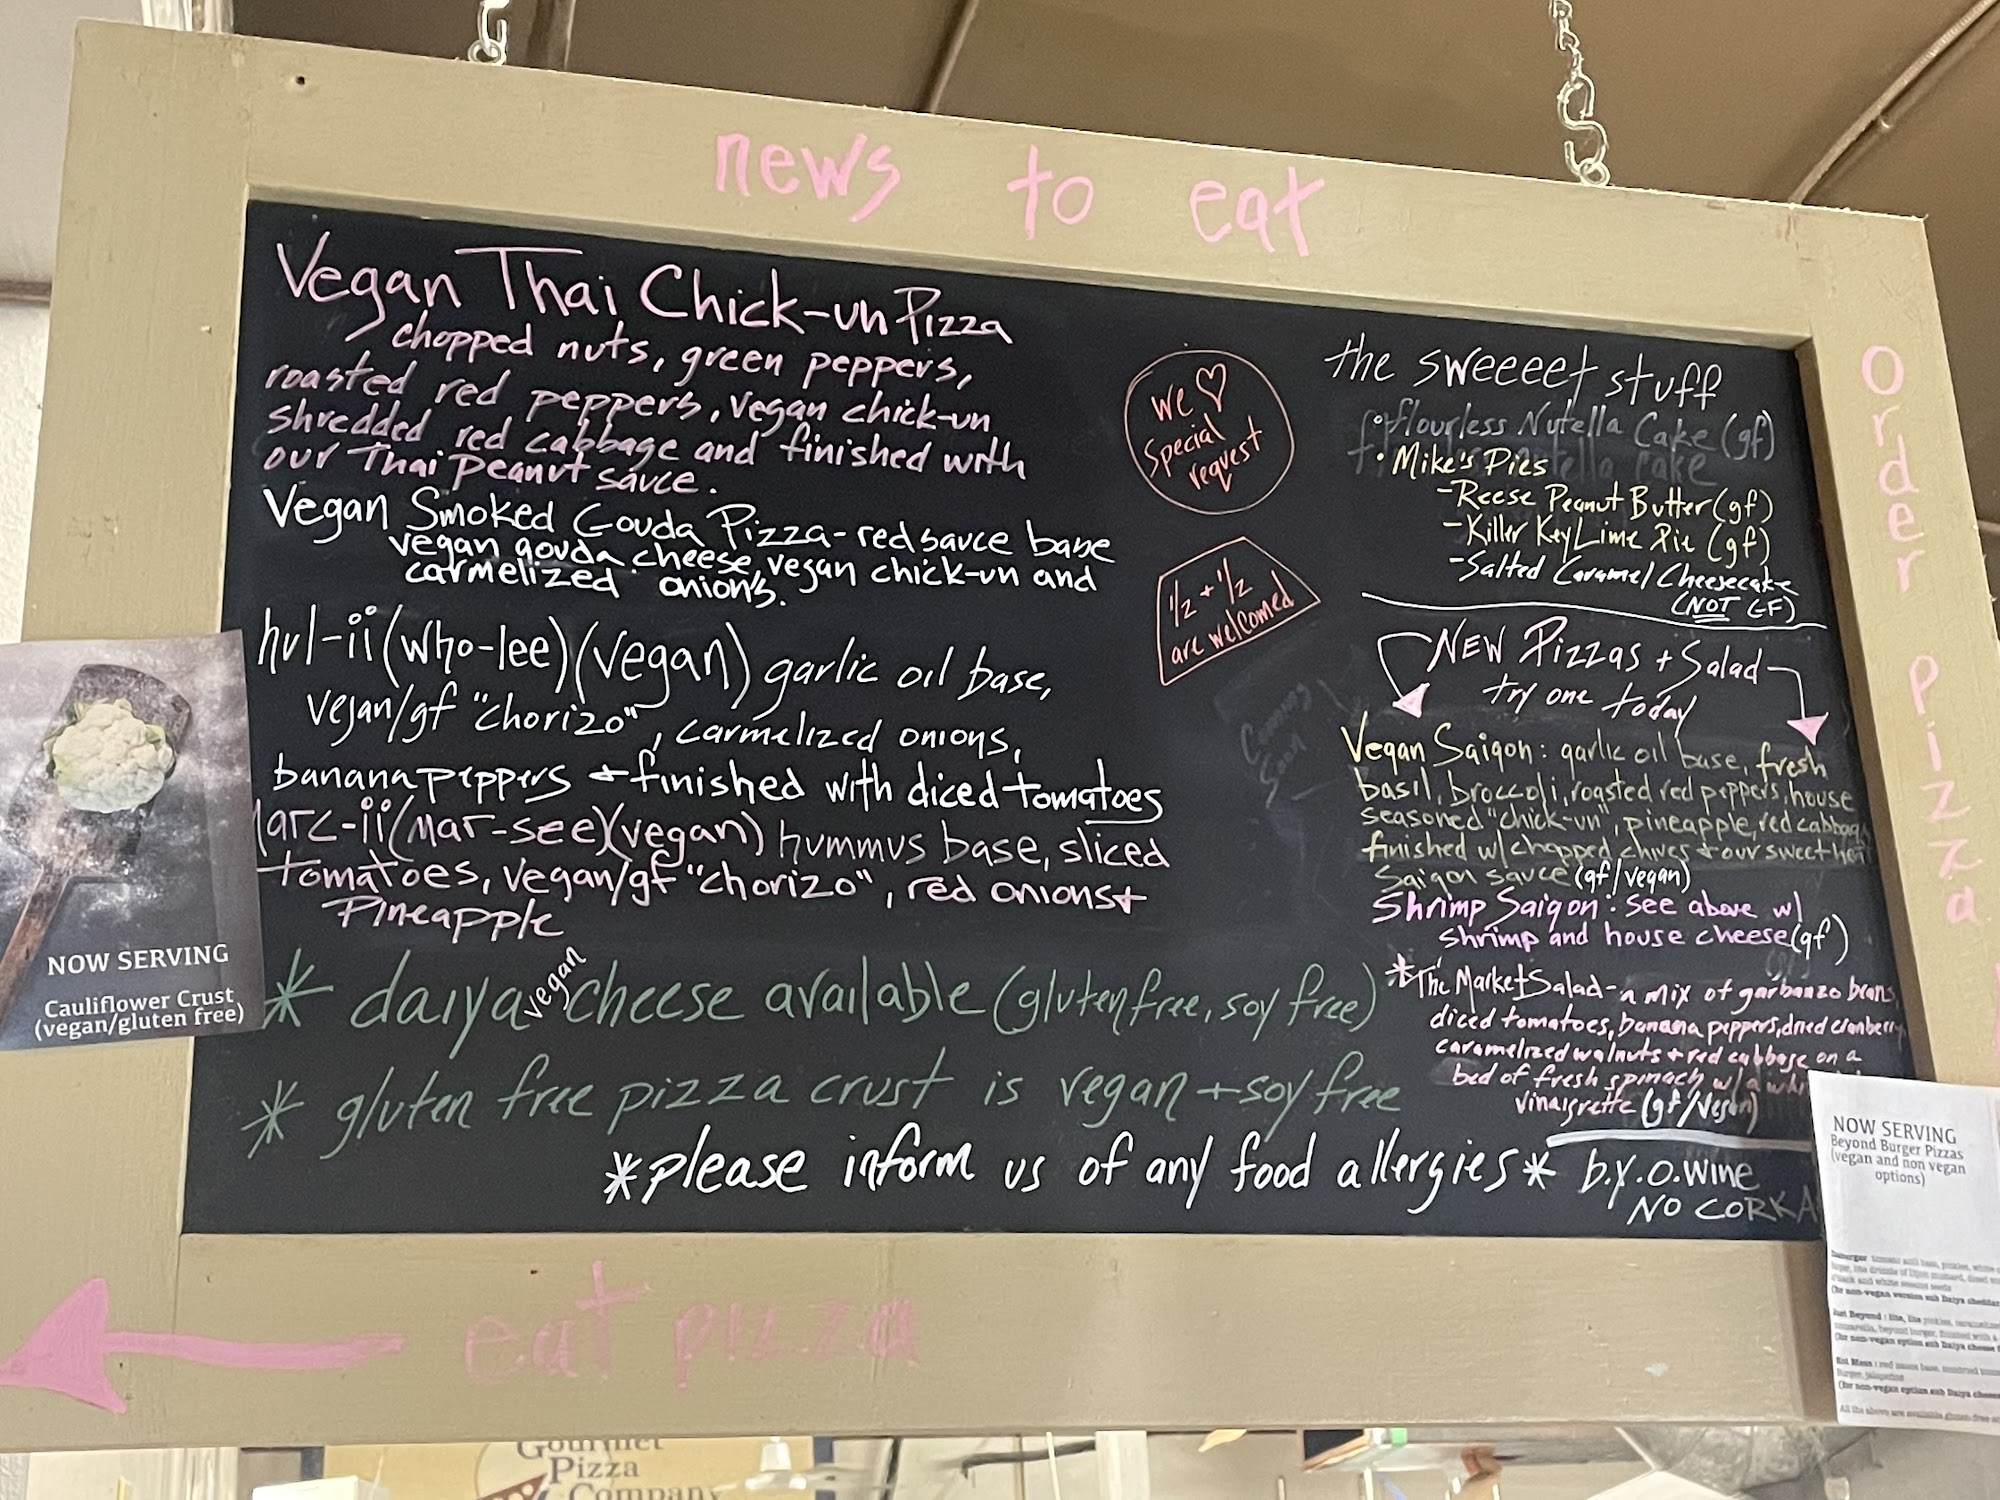 news to eat
Vegan Thai Chick-un Pizza
chopped nuts, green peppers,
roasted red peppers, vegan chick-un
shredded red cabbage and finished with
our Thai Peanut sauce.
Vegan Smoked Gouda Pizza - red sauce base
vegan gouda cheese, vegan chick-un and
carmelized onions.
hul-ii (who-lee) (vegan) garlic oil base,
vegan/gf "chorizo", carmelized onions,
banana peppers + finished with diced tomatoes
Marc-ii (mar-see) (vegan) hummus base, sliced
tomatoes, vegan/gf "chorizo", red onions +
Pineapple
* daiya vegan cheese available (gluten free, soy free)
* gluten free pizza crust is vegan + soy free
*please inform us of any food allergies*
We ♡
Special
request
1/2 + 1/2
are welcomed
the sweeeet stuff
• flourless Nutella Cake (gf)
• Mike's Pies
- Reese Peanut Butter (gf)
- Killer Key Lime Pie (gf)
- Salted Caramel Cheesecake
(NOT GF)
NEW Pizzas + Salad
try one today
Vegan Saigon: garlic oil base, fresh
basil, broccoli, roasted red peppers, house
seasoned "chick-un", pineapple, red cabbage
finished w/ chopped chives + our sweet heat
Saigon sauce (gf/vegan)
Shrimp Saigon: see above w/
shrimp and house cheese (gf)
*The Market Salad - a mix of garbanzo beans,
diced tomatoes, banana peppers, dried cranberry
caramelized walnuts + red cabbage on a
bed of fresh spinach w/ a
vinaigrette (gf/vegan)
b.y.o. wine
NO CORKA
order pizza
eat pizza
NOW SERVING
Cauliflower Crust
(vegan/gluten free)
NOW SERVING
Beyond Burger Pizzas
(vegan and non vegan
options)
Gourmet
Pizza
Company